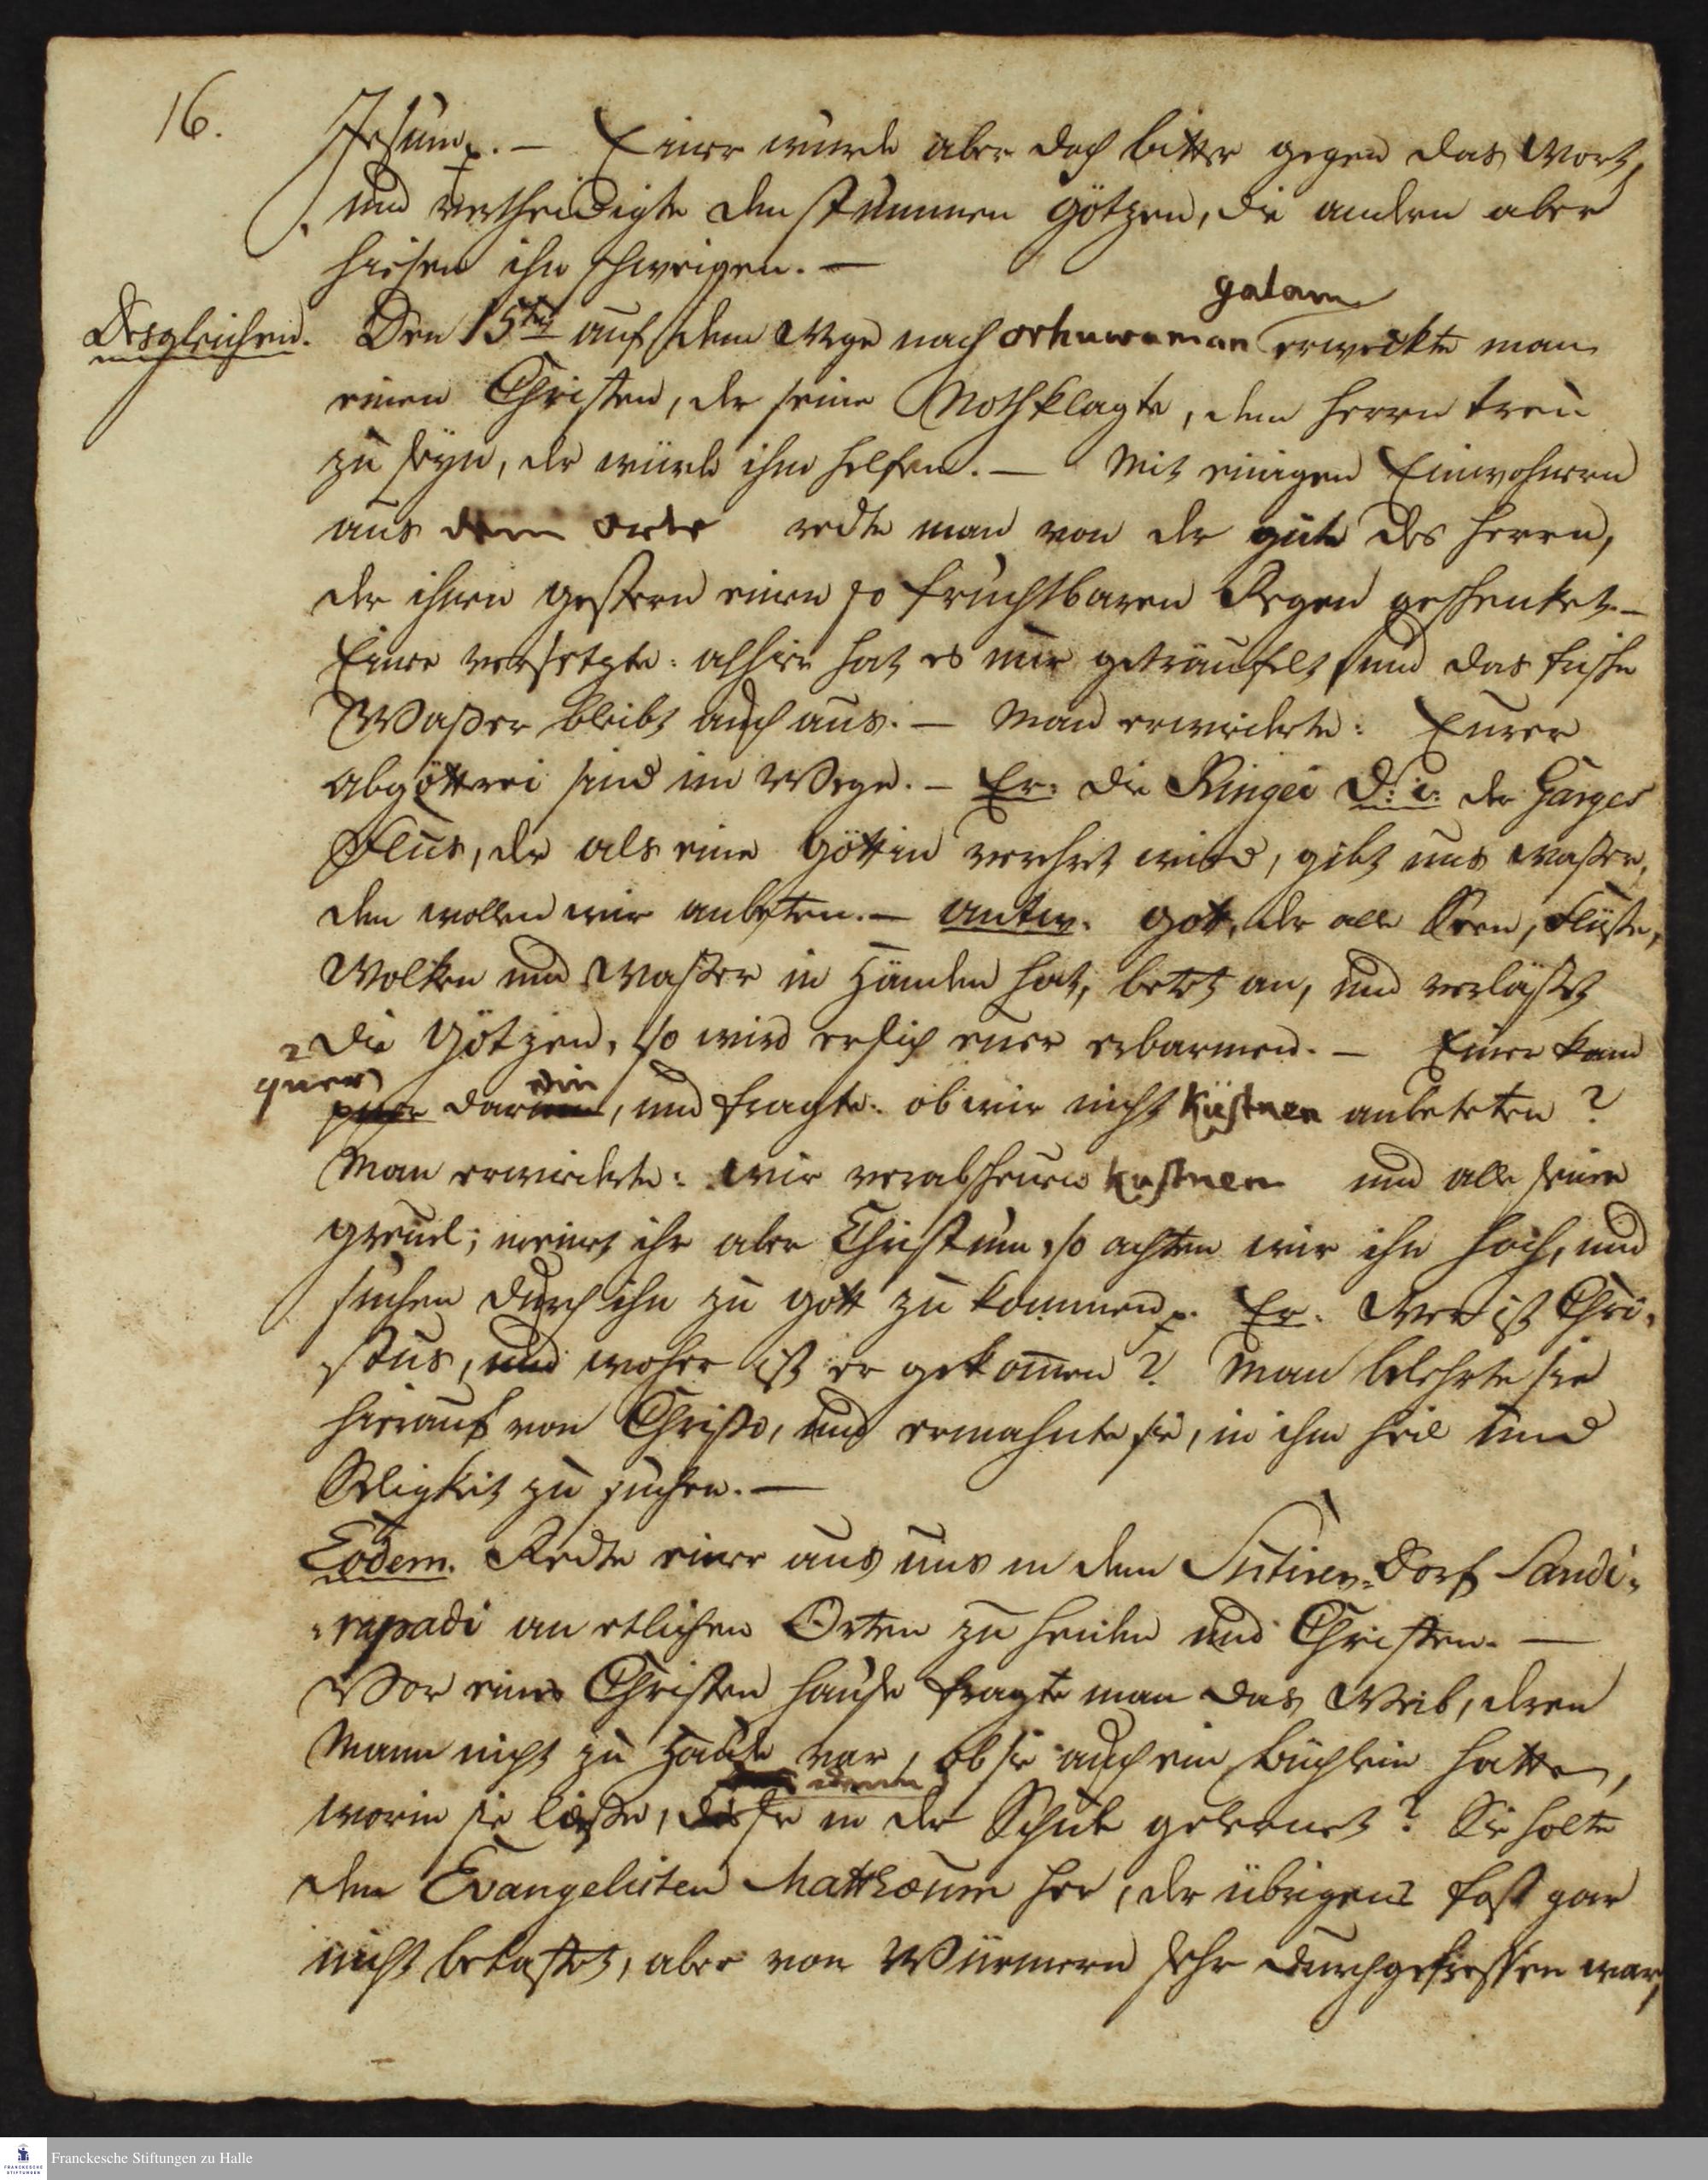 16.
Jesum p. — Einer wurde aber doch bitter gegen das Wort,
und vertheidigte den stummen Götzen, die andern aber
hießen ihn schweigen. —
Desgleichen.
galam
Den 15ten auf dem Wege nach orhuwaman erweckte man
einen Christen, der seine Noth klagte, dem Herrn treu
zu seyn, der würde ihm helfen. — Mit einigen Einwohnern
aus dem Orte redte man von der Güte des Herrn,
der ihnen gestern einen so fruchtbaren Regen geschenket. —
Einer versetzte: alhier hat es nur geträufelt, und das frische
Waßer bleibt auch aus. — Man erwiederte: Eurer
Abgötterei sind im Wege. — Er: die Ringei d. i. der Ganges
Fluß, der als eine Göttin verehrt wird, gibt uns Waßer,
den wollen wir anbeten. — Antw. Gott, der alle Seen, Flüße,
Wolken und Waßer in Händen hat, betet an, und verlaßet
die Götzen, so wird er sich euer erbarmen. — Einer kam
quer
ein
dar, und fragte: ob wir nicht Küstnen anbeteten?
Man erwiederte: wir verabscheuen Kustnen und alle seine
Greuel; meinet ihr aber Christum, so achten wir ihn hoch, und
suchen durch ihn zu Gott zu kommen p. Er. Wer ist Chri-
stus, und woher ist er gekommen? Man belehrte sie
hierauf von Christo, und ermahnte sie, in ihm Heil und
Seligkeit zu suchen. —
Eodem. Redte einer aus uns in dem Sutirer-Dorf Sandi-
rapadi an etlichen Orten zu Heiden und Christen. —
Vor eines Christen Hause fragte man das Weib, deren
Mann nicht zu Hause war, ob sie auch ein Büchlein hatte,
wenn
worin sie läse, sie in der Schule gelernet? Sie holte
den Evangelisten Matthæum her, der übrigens fast gar
nicht betastet, aber von Würmern sehr durchgefressen war,
Franckesche Stiftungen zu Halle